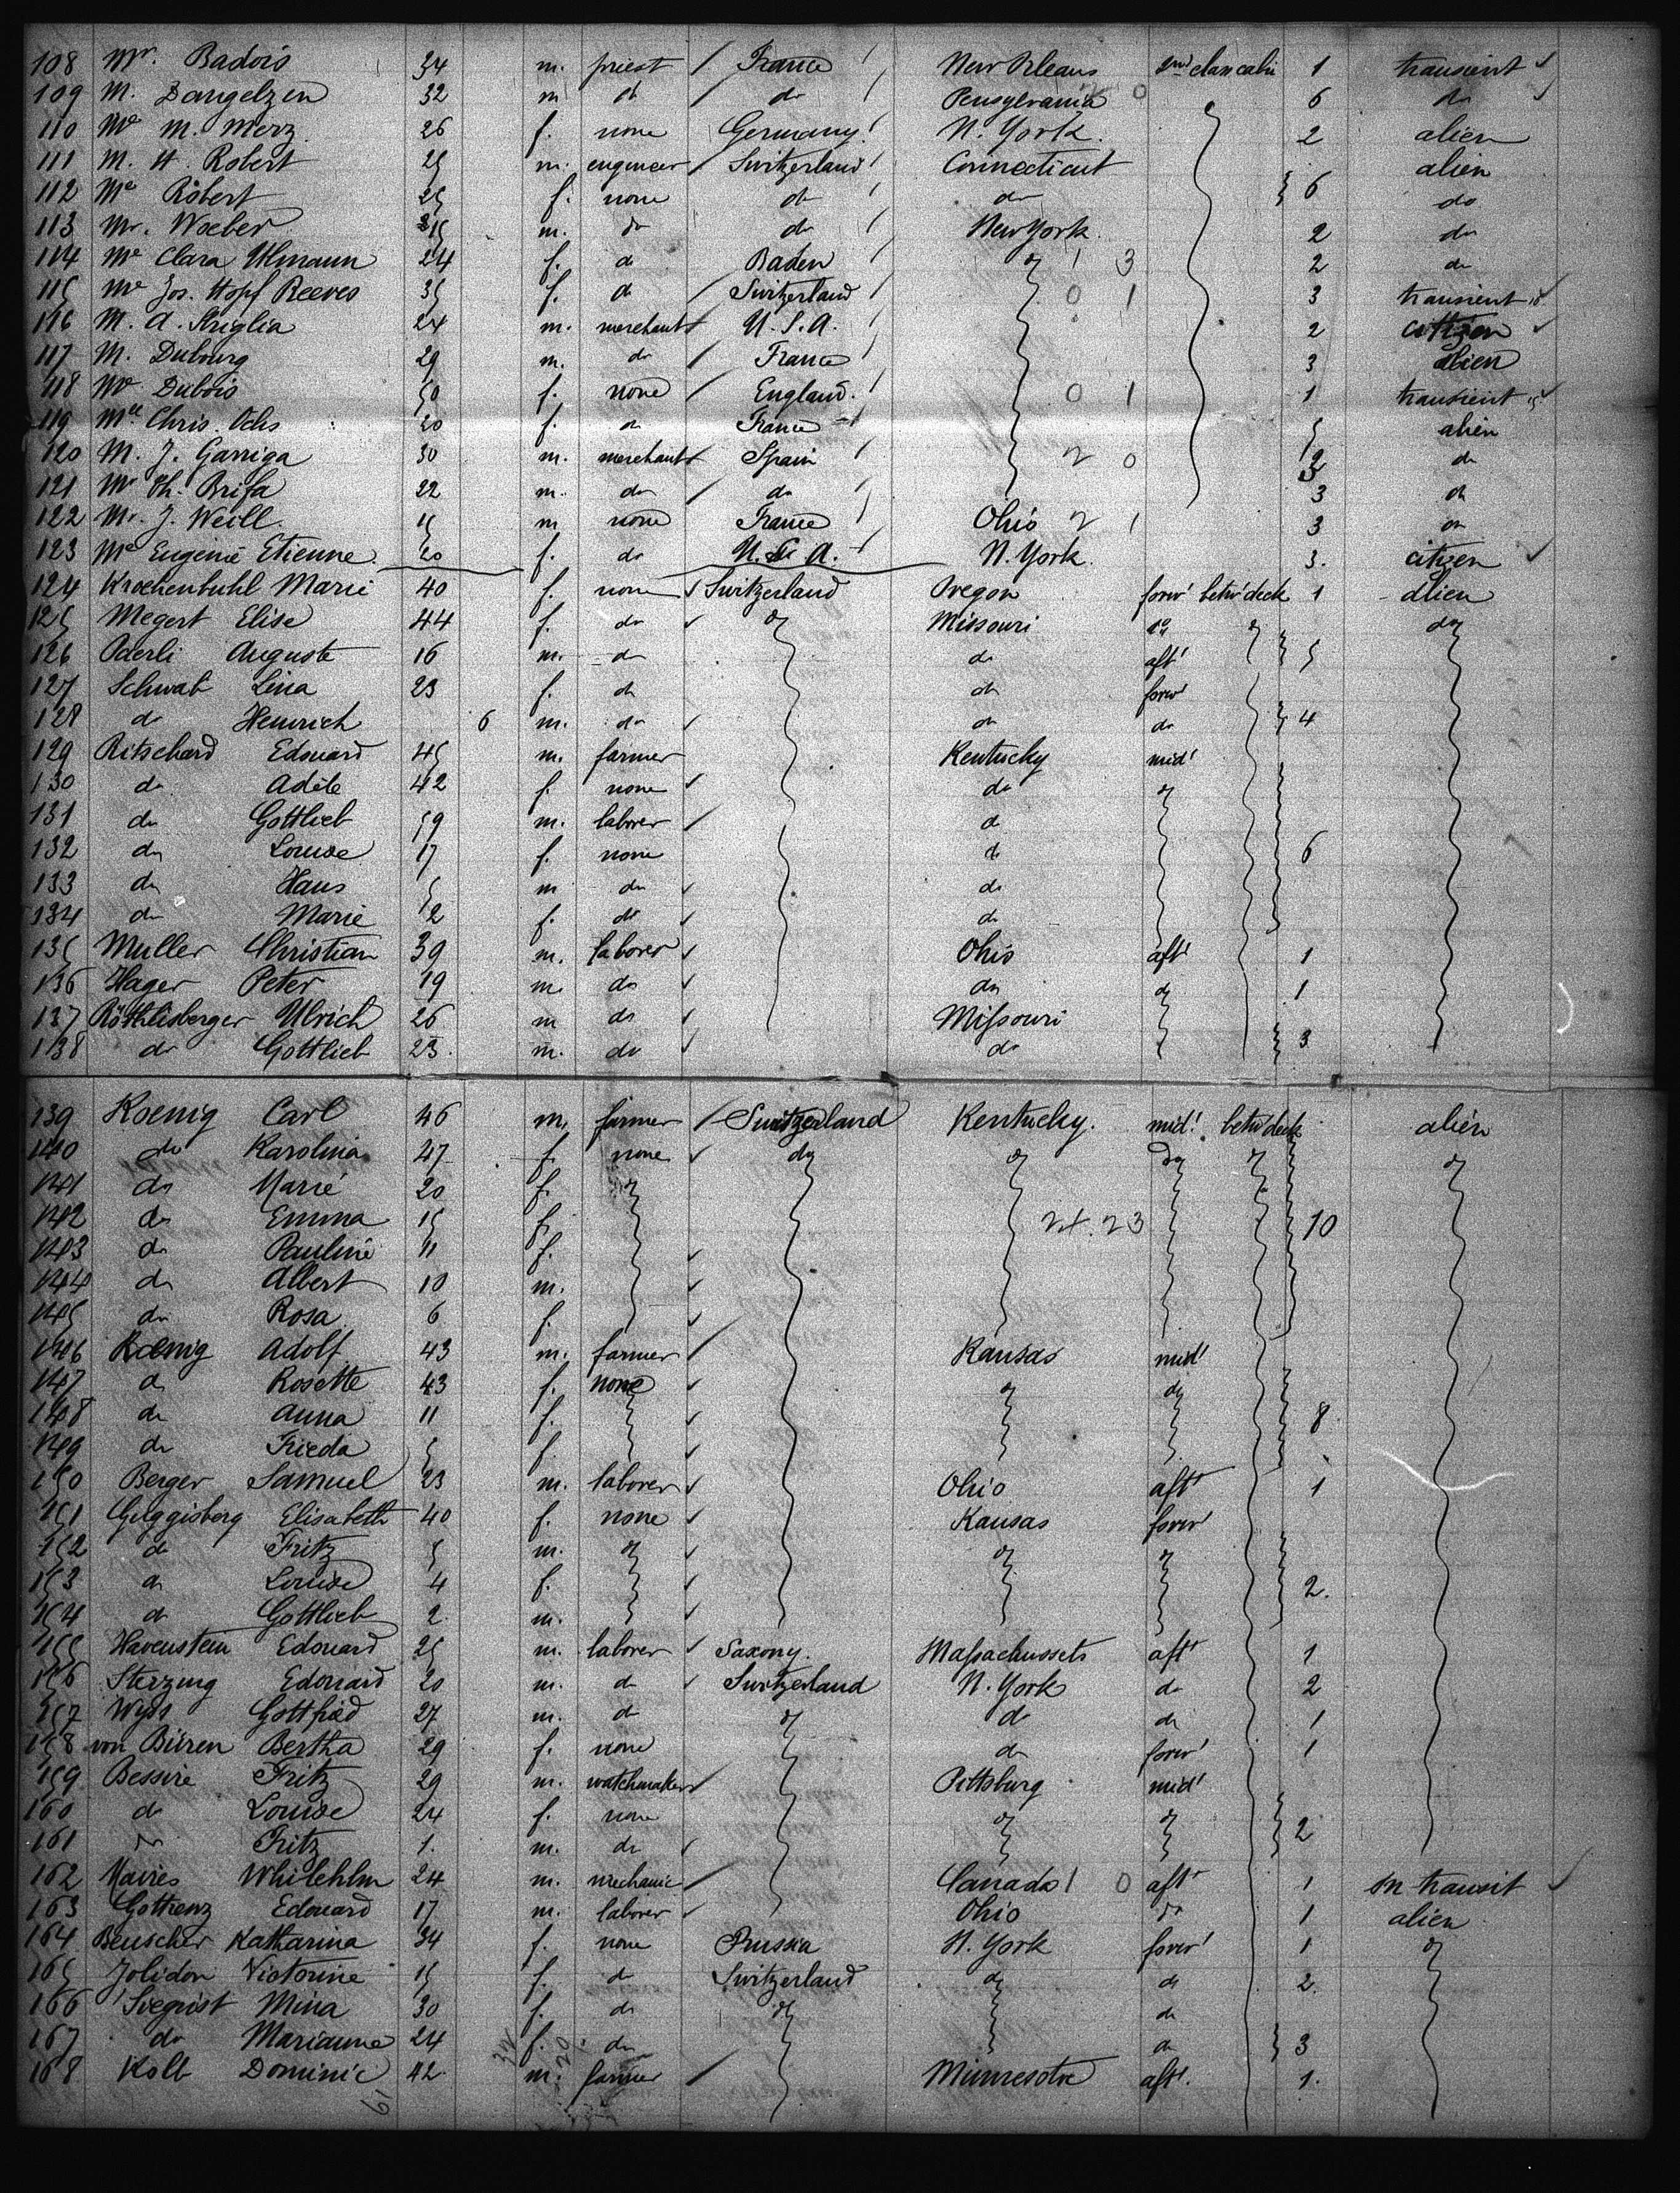 108 Mr. Badois 34 m. priest France New Orleans 2nd class cabin 1 transient
109 M. Dangelzen 32 m do do Pensylvania 0 6 do
110 Me M. Merz 26 f. none Germany N. York. 2 alien
111 M. H. Robert 25 m. engineer Switzerland Connecticut alien
112 Me Robert 25 f. none do do 6 do
113 Mr. Weber m. do do New York. 2 do
114 Me Clara Ulmann 24 f. do Baden do 1 3 2 do
115 Me Jos. Hopf Reeves 35 f. do Switzerland 0 1 3 transient
116 M. A. Striglia 24 m. merchant U. S. A. 2 citizen
117 M. Dubourg 29 m. do France 3 alien
118 Me Dubois 50 f. none England. 0 1 1 transient
119 Mlle Chris. Ochs 20 f. do France 5 alien
120 M. J. Garriga 30 m. merchant Spain 2 0 do
121 Mr Th. Brifa 22 m. do do 3 do
122 Mr. J. Weill. 15 m none France Ohio 2 1 3 do
123 Me Eugenie Etienne. 20 f. do U. S. A. N. York. 3. citizen
124 Kroehenbuhl Marie 40 f. none Switzerland Oregon forwd betw deck 1 alien
125 Megert Elise 44 f. do do Missouri do do do
126 Oderli Auguste 16 m. do do aftt 5
127 Schwab Lina 23 f. do do forwd
128 do Heinrich 6 m. do do do 4
129 Ritschard Edouard 45 m. farmer Kentucky midt
130 do Adèle 42 f. none do do
131 do Gottlieb 19 m. laborer do
132 do Louise 17 f. none do 6
133 do Hans 5 m do do
134 do Marie 2 f. do do
135 Muller Christian 39 m. laborer Ohio aftt 1
136 Hager Peter 19 m. do do do 1
137 Röthlisberger Ulrich 26 m do Missouri
138 do Gottlieb 23. m. do do 3
139 Koenig Carl 46 m. farmer Switzerland Kentucky. midt betw deck alien
140 do Karolina 47 f. none do do do do do
141 do Marie 20 f. do
142 do Emma 15 f. 10
143 do Pauline 11 f.
144 do Albert 10 m.
145 do Rosa 6 f.
146 Kœnig Adolf 43 m. farmer Kansas midt
147 do Rosette 43 f. none do do
148 do Anna 11 f. 8
149 do Frieda 5 f.
150 Berger Samuel 23 m. laborer Ohio aftt 1
151 Guggisberg Elisabeth 40 f. none Kansas forwd
152 do Fritz 5 m. do do do
153 do Louise 4 f. 2.
154 do Gottlieb 2 m.
155 Havenstein Edouard 25 m. laborer Saxony. Massachussets aftt 1
156 Sterzing Edouard 20 m. do Switzerland N. York do 2
157 Wyss Gottfried 27 m. do do do do 1
158 von Büren Bertha 29 f. none do forwd 1
159 Bessire Fritz 29 m. watchmaker Pittsburg midt
160 do Louise 24 f. none do do 2
161 do Fritz 1. m. do
162 Whilehlm 24 m. mechanic Canada 1 0 aftt 1 in transit
163 Edouard 17 m. laborer Ohio do 1 alien
164 Beuscher Katharina 34 f. none Prussia N. York forwd 1 do
165 Jolidon Victorine 15 f. do Switzerland do do 2
166 Siegrist Mina 30 f. do do do
167 do Marianne 24 f. do do 3
168 Kolb Dominic 42 m. farmer Minnesota aftt. 1.